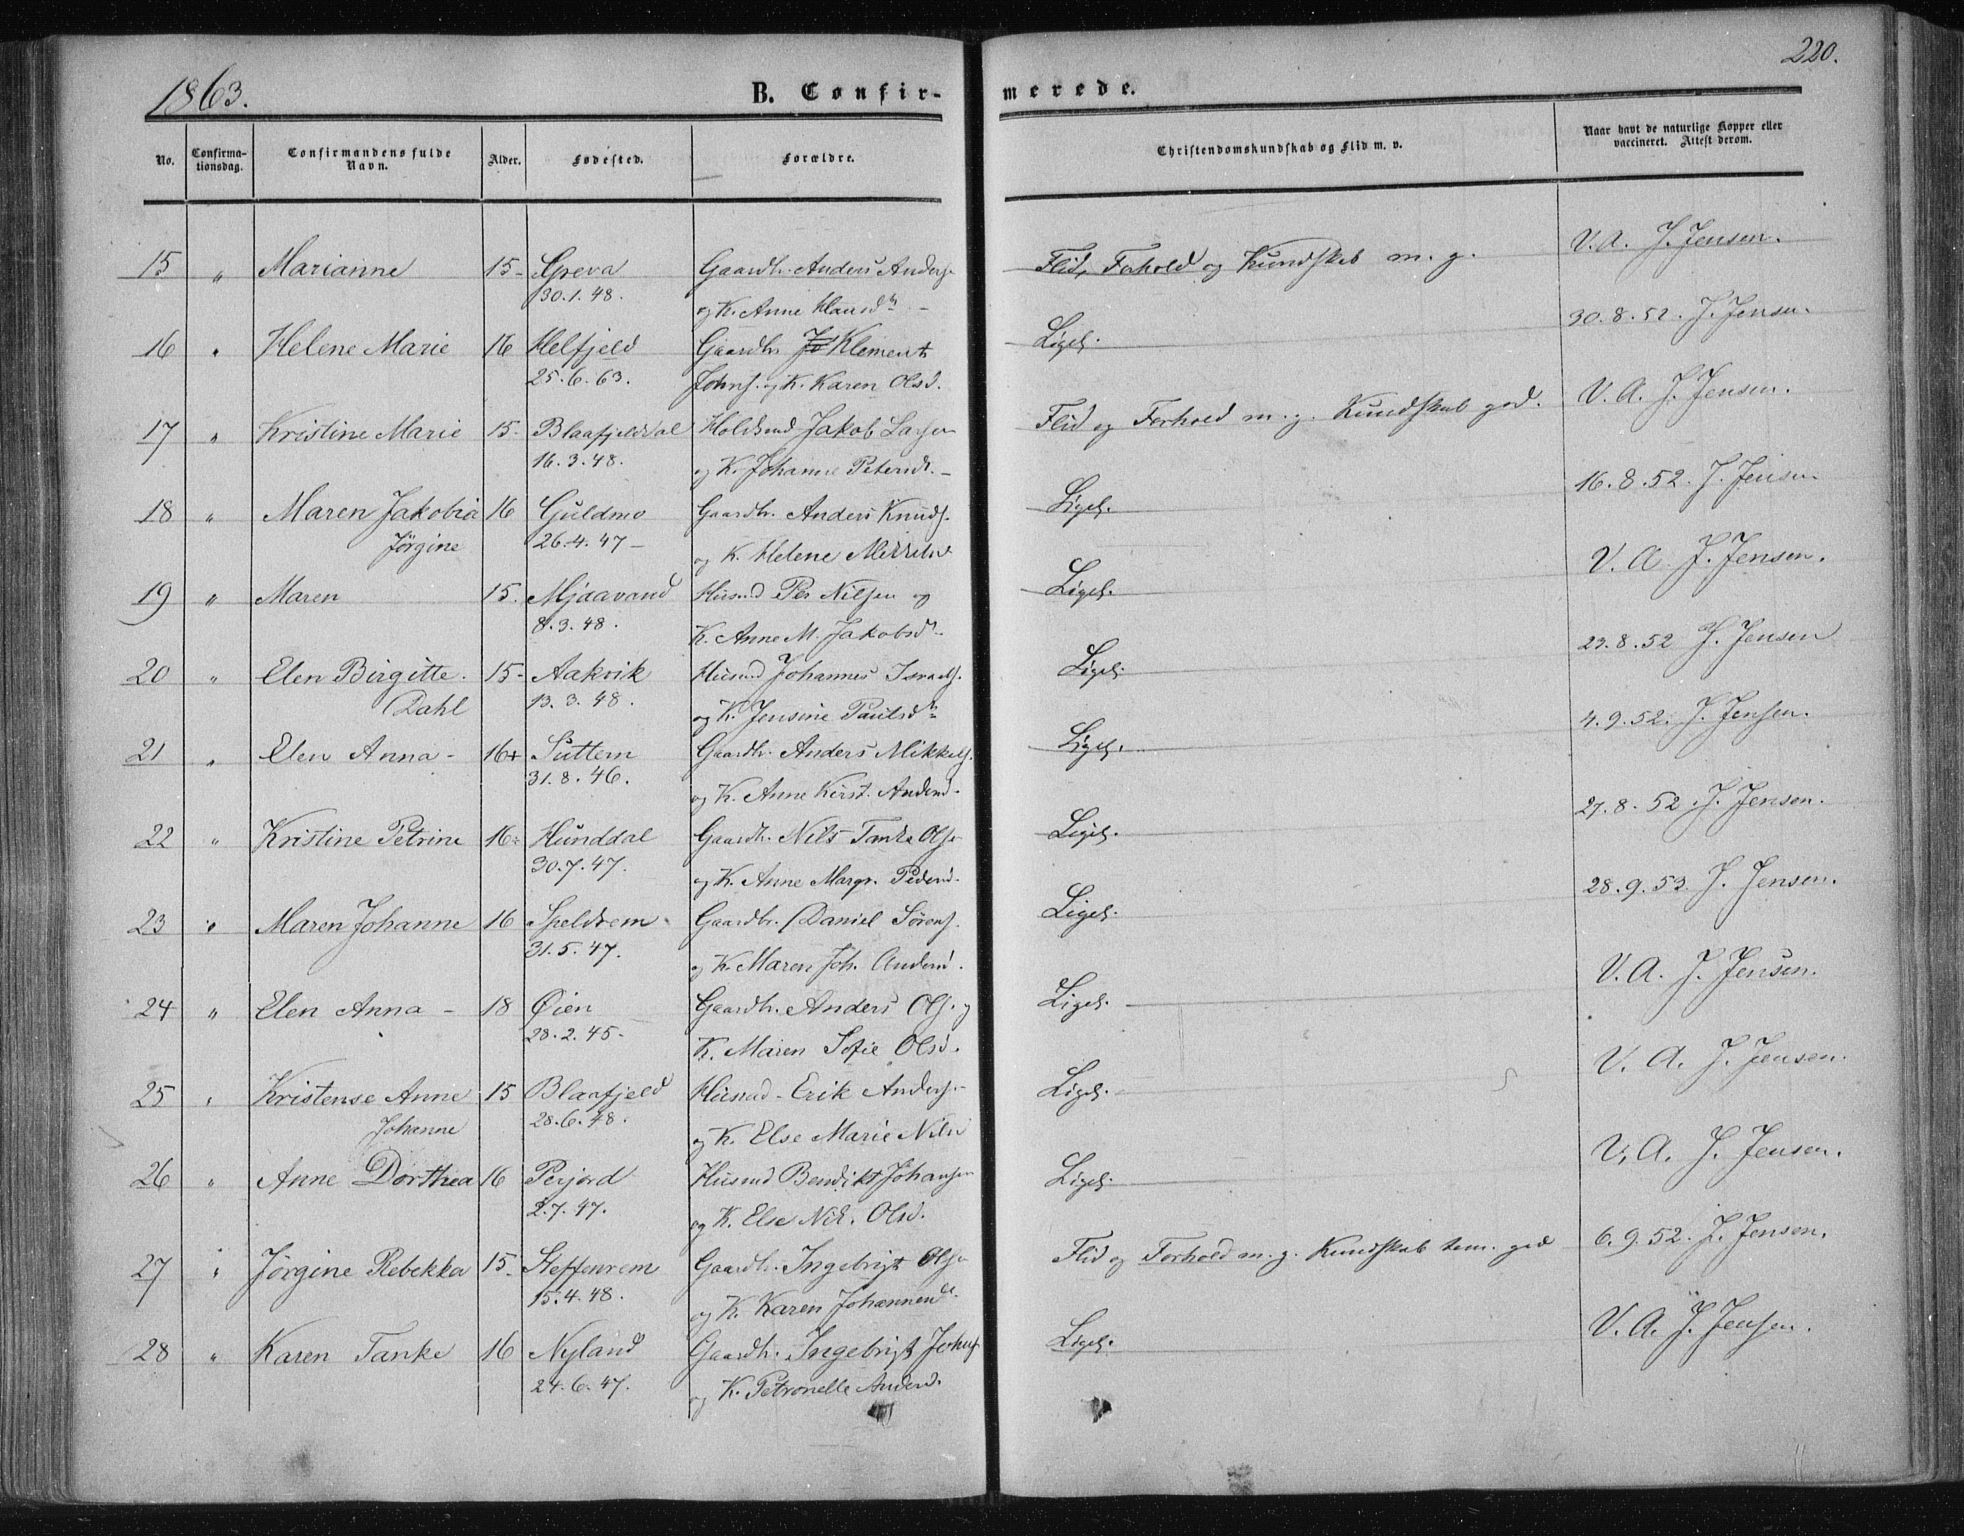 1863.
B. Confir-
merede.
220.
No.
Confirma-
tionsdag.
Confirmandens fulde
Navn.
Alder.
Fødested.
Forældre.
Christendomskundskab og Flid m. v.
Naar havt de naturlige Kopper eller
vaccineret. Attest derom.
15 " Marianne 15- Greva Gaardbr. Anders Anders. Flid, Forhold og Kundskab m. g. V. A. J. Jensen.
30.1.48. og K. Anne Hansdtr
16 " Helene Marie 16 Helfjeld Gaardbr. Jo Klement Ligel. 30.8.52. J. Jensen.
25.6.63. Johns. og K. Karen Olsd.
17 " Kristine Marie 15- Blaafjelddal Holdsmd Jakob Larsen Flid og Forhold m. g. Kundskab god. V. A. J. Jensen.
16.3.48. og K. Johanne Petersdt.
18 " Maren Jakobia 16 Guldmo Gaardbr. Anders Knuds. Ligel. 16.8.52. J. Jensen
Jörgine 26.4.47- og K. Helene Mikkelsd
19 " Maren 15. Mjaavand Husmd Per Nilsen og Ligel. V. A. J. Jensen.
8.3.48. K. Anne M. Jakobsdtr
20 " Elen Birgitte 15- Aakvik Husmd Johannes Israels. Ligel. 23.8.52 J. Jensen
Dahl 13.3.48. og K. Jensine Paulsdtr
21 " Elen Anna - 16+ Suttern Gaardbr. Anders Mikkels. Ligel. 4.9.52. J. Jensen.
31.8.46. og K. Anne Kirst. Andersd.
22 " Kristine Petrine 16 Hunddal Gaardbr. Nils Tanke Ols. Ligel. 27.8.52. J. Jensen.
30.7.47. og K. Anne Margr. Pedersd.
23 " Maren Johanne 16 Speldrem Gaardbr. Daniel Sörens. Ligel. 28.9.53. J. Jensen.
31.5.47. og K. Maren Joh. Andersd.
24 " Elen Anna - 18 Øien Gaardbr. Anders Ols. og Ligel. V. A. J. Jensen.
28.2.45- K. Maren Sofie Olsd.
25 " Kristense Anne 15 Blaafjeld Husmd - Erik Anders. Ligel. V. A. J. Jensen.
Johanne 28.6.48. og K. Else Marie Nilsd
26 " Anne Dorthea 16 Perjord Husmd Bendikt Johansen Ligel. V. A. J. Jensen.
2.7.47. og K. Else Nik. Olsd.
27 " Jörgine Rebekka 15- Steffenrem Gaardbr. Ingebrigt Ols. Flid og Forhold m. g. Kundskab tem. god 6.9.52. J. Jensen.
15.4.48. og K. Karen Johannesdt.
28 " Karen Tanke 16 Nyland Gaardbr. Ingebrigt Johns. Ligel. V. A. J. Jensen.
24.6.47. og K. Petronelle Andersd.